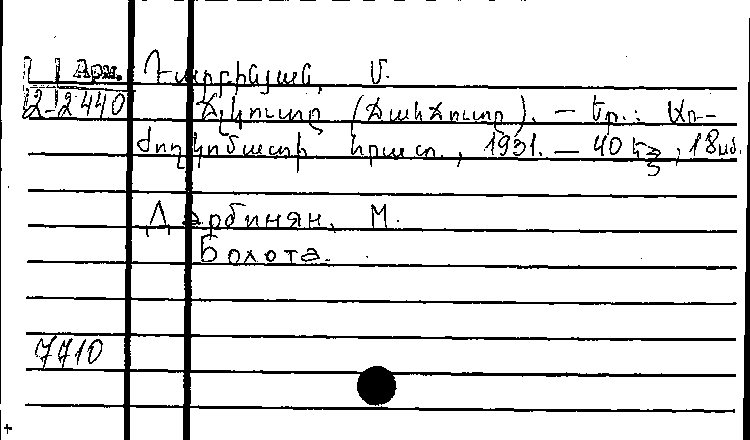 Арм. Դարբինյան, Մ.
2-2440 Ճլկուտը (Ճահճուտը). — Եր.: Առ-
ժողկոմատի հրատ., 1931. — 40 էջ, 18սմ.
Дарбинян, М.
Болота.
7710